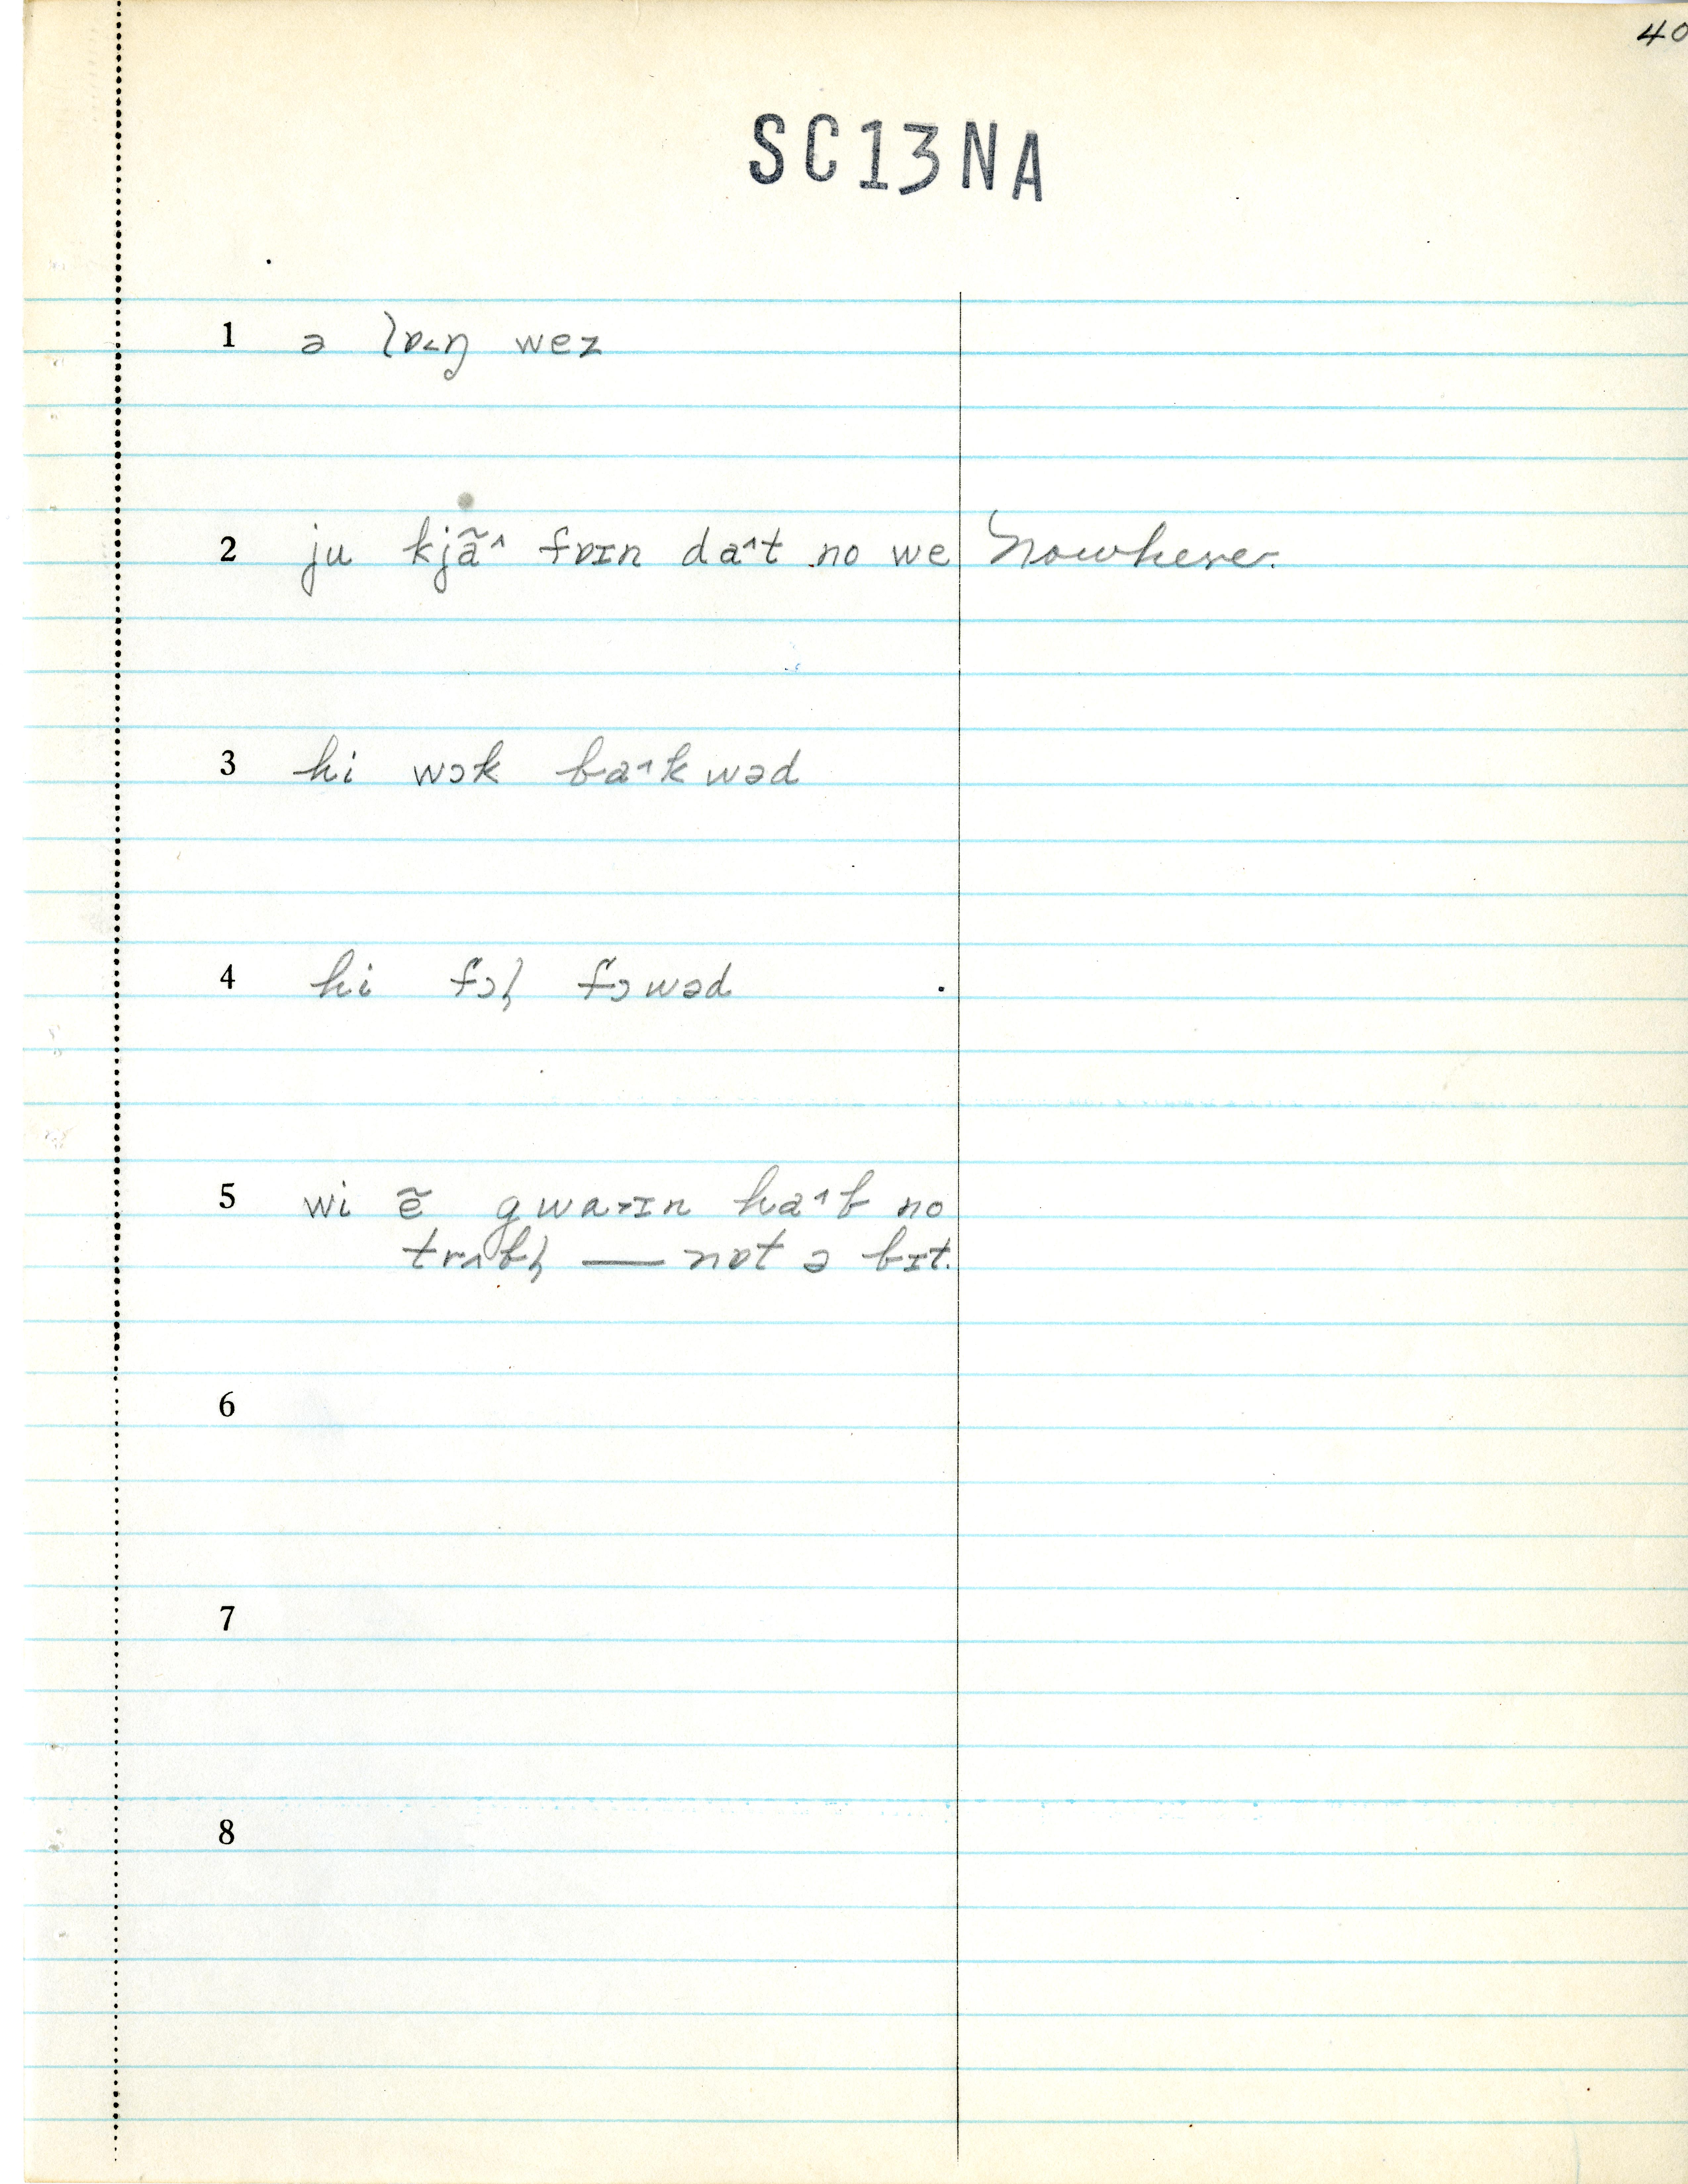 40
SC13NA
1 ə lɒ˂ŋ wez
2 ju kjã˄ fɒɪn da˄t no we nowhere.
3 hi wɔk ba˄kwəd
4 hi fɔl̩ fɔwəd
5 wi ẽ gwa˃ɪn ha˄b no
trʌbl̩ — nɒt ə bɪt.
6
7
8